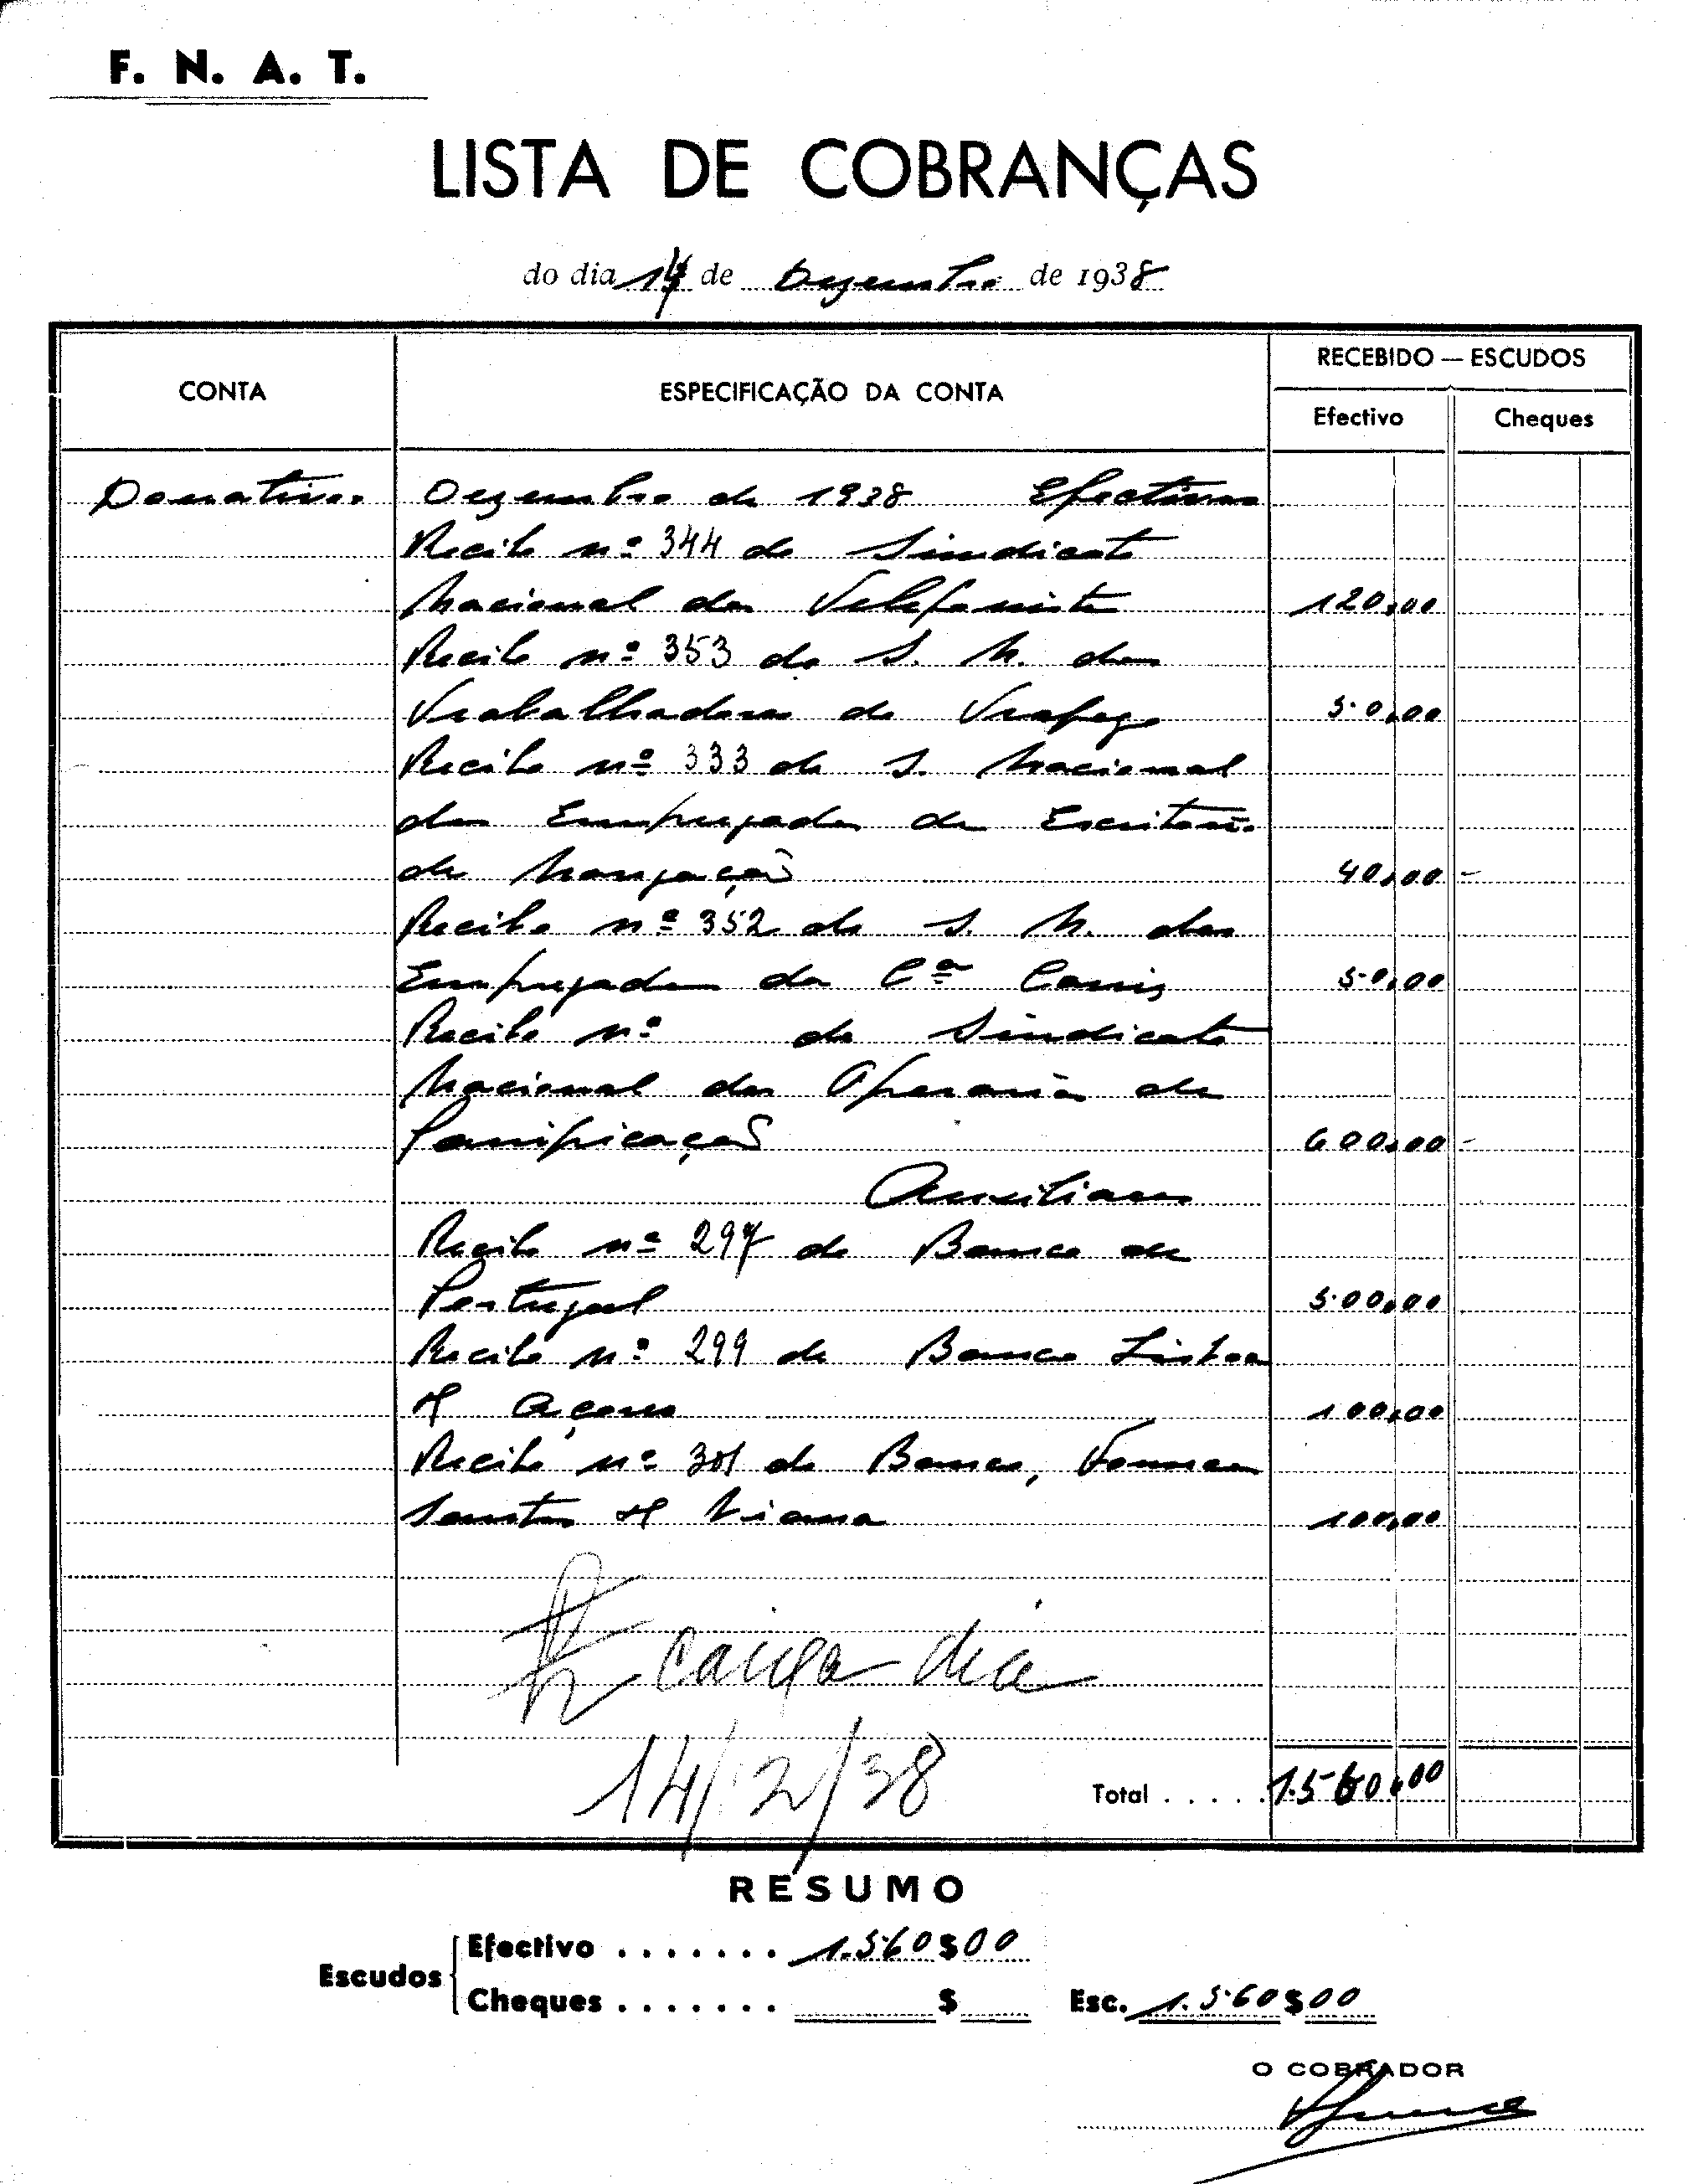 F. N. A. T.
LISTA DE COBRANÇAS
do dia 14 de Dezembro de 1938
CONTA
ESPECIFICAÇÃO DA CONTA
RECEBIDO — ESCUDOS
Efectivo
Cheques
Donativos Dezembro de 1938 Efectivos
Recibo nº 344 do Sindicato
Nacional dos Telefonistas 120,00
Recibo nº 353 do S. N. dos
Trabalhadores do Trafego 50,00
Recibo nº 333 do S. Nacional
dos Empregados de Escritorio
de Navegação 40,00 -
Recibo nº 352 do S. N. dos
Empregados da Cª Carris 50,00
Recibo nº do Sindicato
Nacional dos Operarios de
Panificação 600,00 -
Auxiliares
Recibo nº 297 do Banco de
Portugal 500,00
Recibo nº 299 do Banco Lisboa
& Açores 100,00
Recibo nº 301 do Banco, Fonsecas
Santos & Viana 100,00
caixa dia
14/12/38
Total . . . . . 1.560,00
RESUMO
Escudos
Efectivo . . . . . . . 1.560$00
Cheques . . . . . . . $
Esc. 1.560$00
O COBRADOR